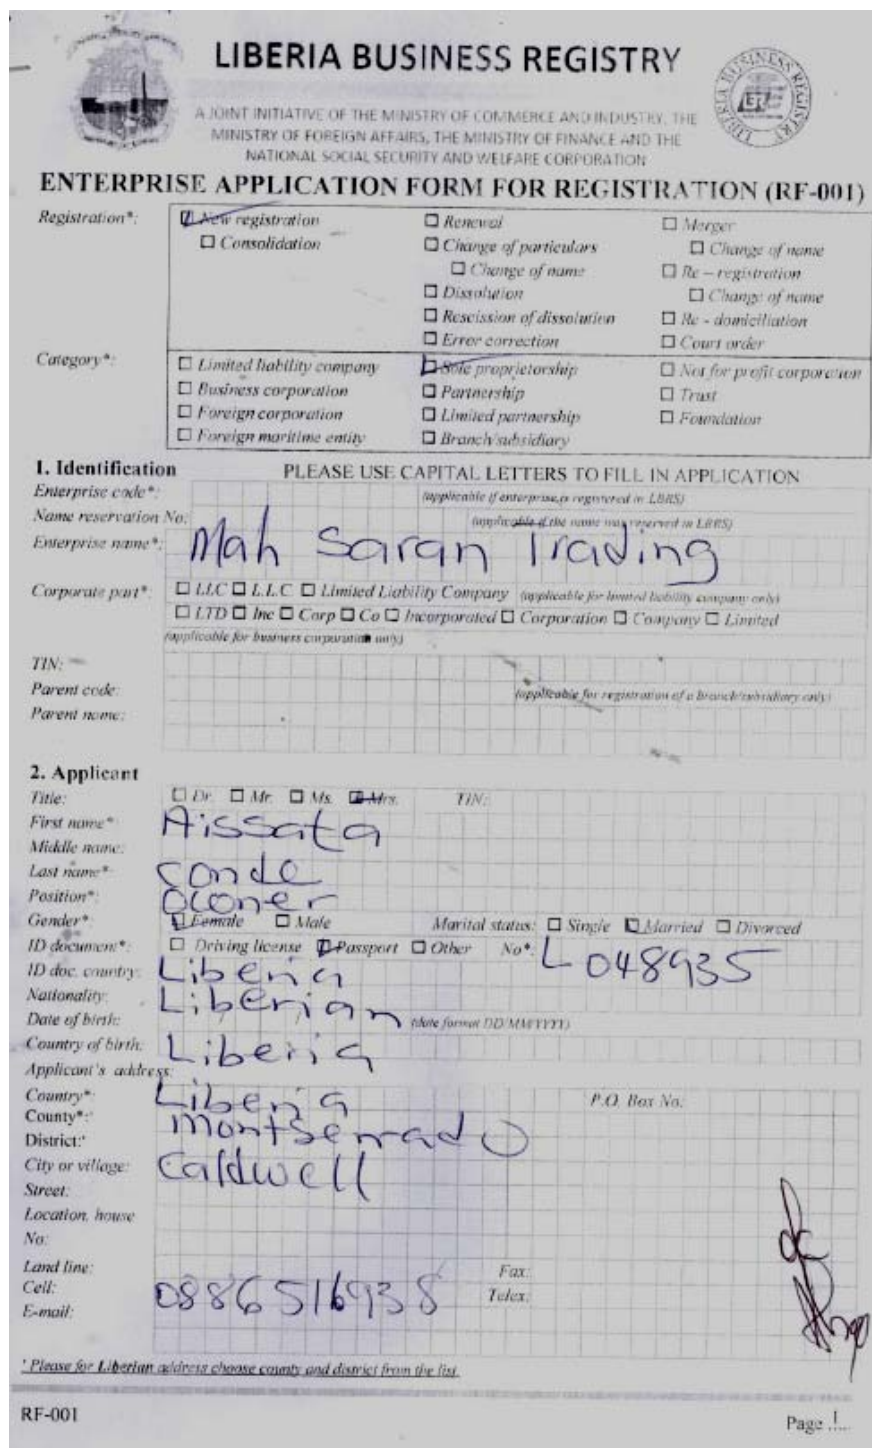 LIBERIA BUSINESS REGISTRY
A JOINT INITIATIVE OF THE MINISTRY OF COMMERCE AND INDUSTRY, THE
MINISTRY OF FOREIGN AFFAIRS, THE MINISTRY OF FINANCE AND THE
NATIONAL SOCIAL SECURITY AND WELFARE CORPORATION
LIBERIA BUSINESS REGISTRY
ENTERPRISE APPLICATION FORM FOR REGISTRATION (RF-001)
Registration*: New registration ☐ Renewal ☐ Merger
☐ Consolidation ☐ Change of particulars ☐ Change of name
☐ Change of name ☐ Re – registration
☐ Dissolution ☐ Change of name
☐ Rescission of dissolution ☐ Re - domiciliation
☐ Error correction ☐ Court order
Category*: ☐ Limited liability company Sole proprietorship ☐ Not for profit corporation
☐ Business corporation ☐ Partnership ☐ Trust
☐ Foreign corporation ☐ Limited partnership ☐ Foundation
☐ Foreign maritime entity ☐ Branch/subsidiary
1. Identification PLEASE USE CAPITAL LETTERS TO FILL IN APPLICATION
Enterprise code*: (applicable if enterprise is registered in LBRS)
Name reservation No: (applicable if the name was reserved in LBRS)
Enterprise name*: Mah Saran Trading
Corporate part*: ☐ LLC ☐ L.L.C ☐ Limited Liability Company (applicable for limited liability company only)
☐ LTD ☐ Inc ☐ Corp ☐ Co ☐ Incorporated ☐ Corporation ☐ Company ☐ Limited
(applicable for business corporation only)
TIN:
Parent code: (applicable for registration of a branch/subsidiary only)
Parent name:
2. Applicant
Title: ☐ Dr. ☐ Mr. ☐ Ms. Mrs. TIN:
First name*: Aissata
Middle name:
Last name*: Conde
Position*: Owner
Gender*: Female ☐ Male Marital status: ☐ Single Married ☐ Divorced
ID document*: ☐ Driving license Passport ☐ Other No*: L048935
ID doc. country: Liberia
Nationality: Liberian
Date of birth: (date format DD/MM/YYYY)
Country of birth: Liberia
Applicant's address:
Country*: Liberia P.O. Box No:
County*:' Montserrado
District:'
City or village: Caldwell
Street:
Location, house
No:
Land line: Fax:
Cell: 0886516938 Telex:
E-mail:
' Please for Liberian address choose county and district from the list.
RF-001 Page 1